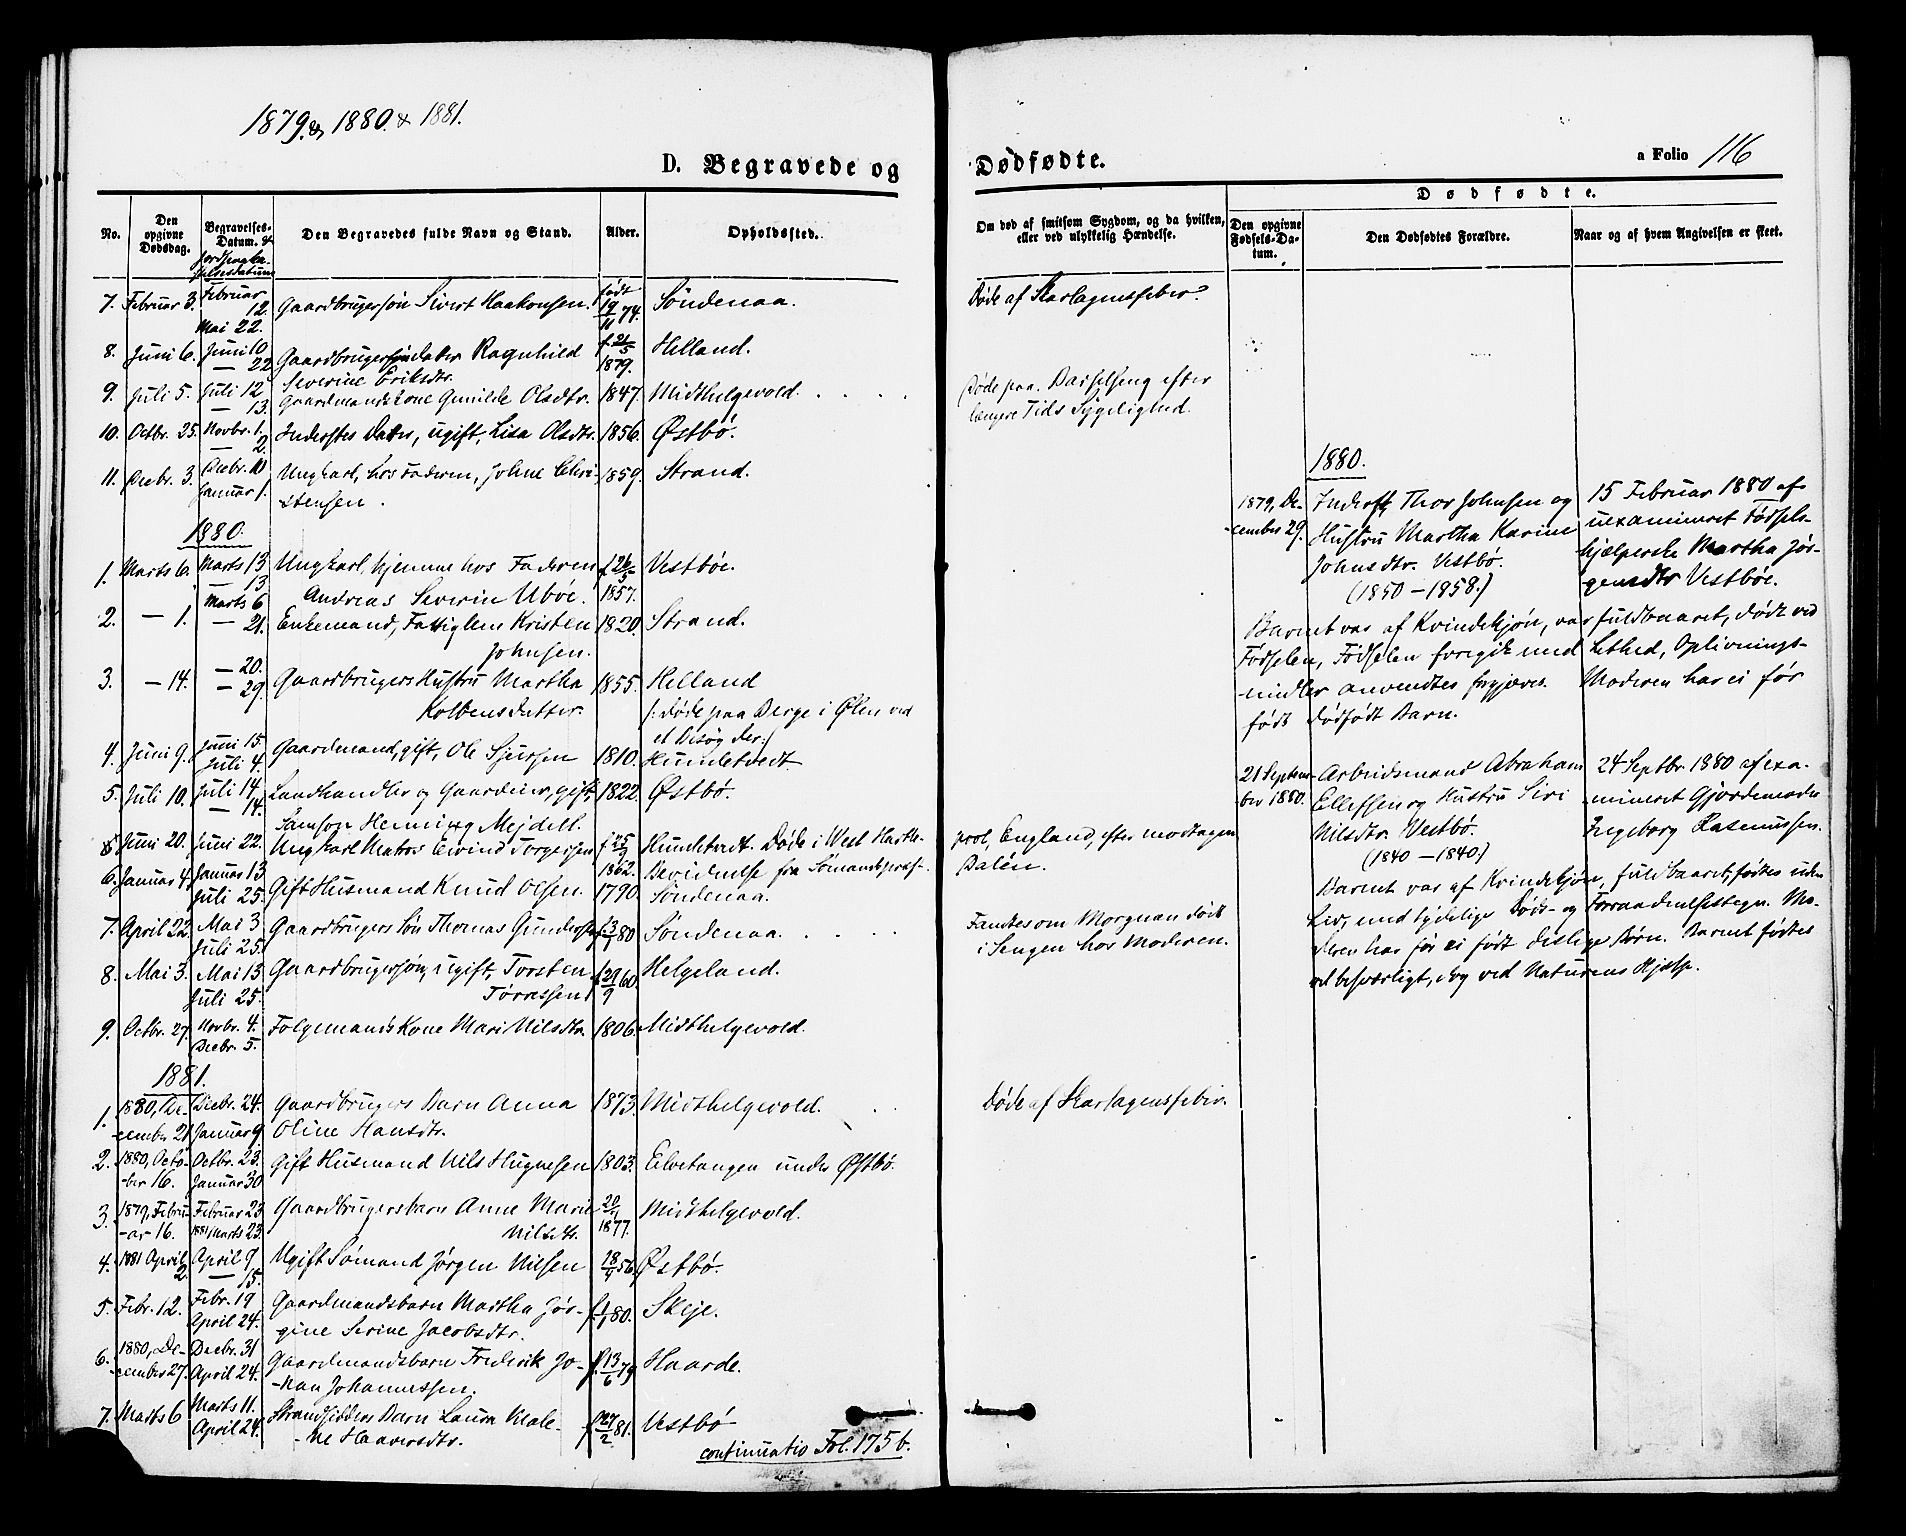 1879. & 1880. & 1881.
D. Begravede og
Dødfødte.
a Folio 116
No.
Den opgivne Dødsdag.
Begravelses-Datum. & Jordpaakastelsesdatum
Den Begravedes fulde Navn og Stand.
Alder.
Opholdssted.
Om død af smitsom Sygdom, og da hvilken,
eller ved ulykkelig Hændelse.
Dødfødte.
Den opgivne Fødsels-Datum.
Den Dødfødtes Forældre.
Naar og af hvem Angivelsen er skeet.
7. Februar 3. Februar 12. Mai 22. Gaardbrugersøn Sivert Haakonsen. født 19/11 74. Søndenaa. Døde af Skarlagensfeber.
8. Juni 6. Juni 10 — 22 Gaardbrugers Datter Ragnhild f. 21/5 1879. Helland.
Severine Eriksdtr.
9. Juli 5. Juli 12 — 13. Gaardmandskone Gunilde Olsdtr. 1847. Midthelgevold. Døde paa Barselseng efter
længere Tids Sygelighed.
10. Octbr. 25. Novbr. 1. — 2. Inderstes Datter, ugift, Lisa Olsdtr. 1856. Østbø.
11. Decbr. 3. Decbr. 10 Januar 1. Ungkarl, hos Faderen, Johne Chri- 1859. Strand.
stensen.
1880.
1. Marts 6. Marts 13 — 13 Ungkarl, hjemme hos Faderen f. 26/5 1857. Vestbøe.
Andreas Severin Ubøe.
2. — 1. Marts 6 — 21. Enkemand, Fattiglem Kristen 1820. Strand.
Johnsen.
3. — 14. — 20. — 29. Gaardbrugers Hustru Martha 1855. Helland
Kolbensdatter. /: Døde paa Berge i Ølen ved
et Besøg der :/
4. Juni 9. Juni 15. Juli 4. Gaardmand, gift, Ole Sjursen 1810. Hundetvedt.
5. Juli 10. Juli 14. — 14. Landhandler og Gaardeier, gift, 1822. Østbø.
Samson Henning Mejdell.
Juni 20. Juni 22. Ungkarl Matros Eivind Torgersen f. 25/9 1862. Hundetvedt. Døde i West Hartle-
pool, England, efter modtagen
6. Januar 4. Januar 13 Juli 25. Gift Husmand Knud Olsen. 1790. Bevidnelse fra Sømandspræst
Dalén.
Søndenaa.
7. April 22. Mai 3 Juli 25. Gaardbrugers Søn Thomas Gunders. f. 3/1 80 Søndenaa. Fandtes om Morgnen død
i Sengen hos Moderen.
8. Mai 3. Mai 13 Juli 25. Gaardbrugersøn, ugift, Torsten f. 29/9 60. Helgeland.
Tørressen
9. Octbr. 27. Novbr. 4. Decbr. 5. Folgemands Kone Mari Nilsdtr. 1806. Midthelgevold.
1881.
1. 1880, De- cember 21 Decbr. 24. Januar 9. Gaardbrugers Barn Anna 1873. Midthelgevold. Døde af Skarlagensfeber.
Oline Hansdtr.
2. 1880, Octo- ber 16. Octbr. 23. Januar 30 Gift Husmand Nils Hugnesen 1803. Eilvetangen under Østbø.
3. 1879, Febru- ar 16. Februar 23 1881 Marts 23. Gaardbrugersbarn Anne Marie 1877. Midthelgevold.
Nilsdtr.
4. 1881 April 2. April 9 — 15. Ugift Sømand Jørgen Nilsen 18/9 56. Østbø.
5. Febr. 12. Febr. 19 April 24. Gaardmandsbarn Martha Jør- f. 1/1 80. Skeje.
gine Serine Jacobsdtr.
6. 1880, De- cember 27. Decbr. 31 April 24. Gaardmandsbarn Frederik Jo- f. 13/6 79 Haarde.
han Johannessen.
7. Marts 6 Marts 11. April 24. Strandsidders Barn Laura Male- f. 27/2 81. Vestbø
ne Haaversdtr.
continuatio Fol. 175 b.
1880.
1879, De- cember 29. Inderst, Thor Johnsen og
Hustru Martha Karine
Johnsdtr. Vestbø.
(1850 — 1858.)
15 Februar 1880 af
uexamineret Fødsels-
hjælperske Martha Jør-
gensdtr Vestbøe.
Barnet var af Kvindekjøn, var fuldbaaret, dødt ved
Fødselen, Fødselen foregik med Lethed, Oplivnings-
midler anvendtes forgjæves. Moderen har ei før
født dødfødt Barn.
21 Septem- ber 1880. Arbeidsmand Abraham
Ellefsen og Hustru Siri
Nilsdtr. Vestbø.
(1840 — 1840.)
24 Septbr. 1880 af exa-
mineret Gjordemoder
Ingeborg Rasmussen.
Barnet var af Kvindekjøn, fuldbaaret, fødtes uden
Liv, med tydelige Døds- og Forraadnelsestegn. Mo-
deren har før ei født deslige Børn. Barnet fødtes
vel besværligt, dog ved Naturens Hjælp.